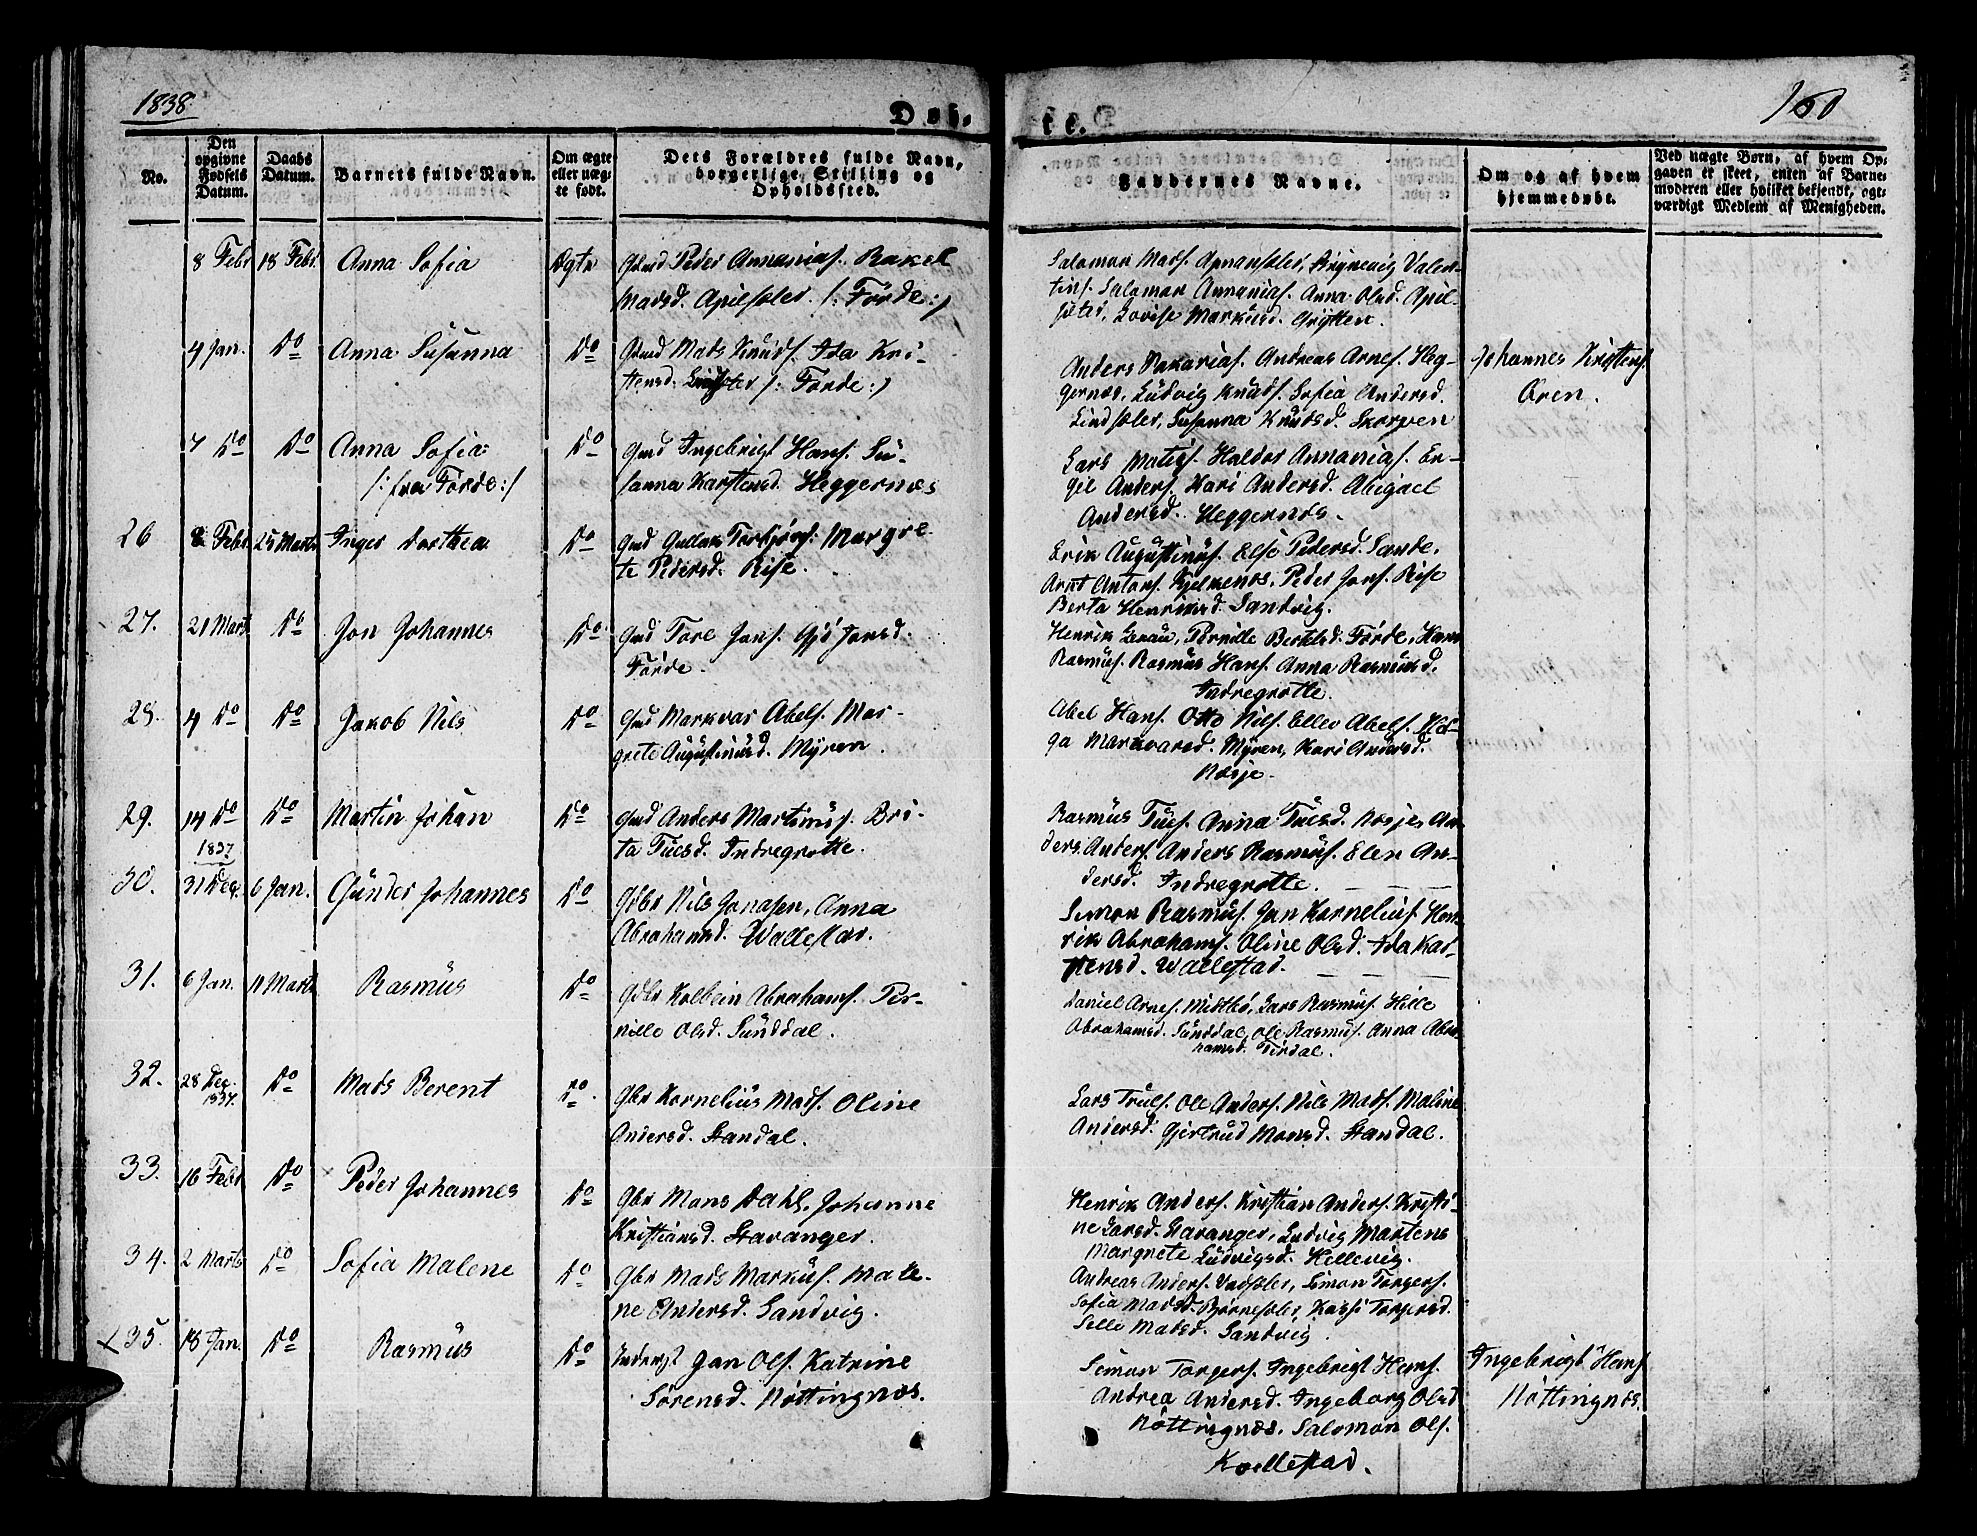 1838
Døb-
te.
160
No.
Den opgivne Fødsels Datum.
Daabs Datum.
Barnets fulde Navn.
Om ægte eller uægte født.
Dets Forældres fulde Navn, borgerlige Stilling og Opholdssted.
Faddernes Navne.
Om og af hvem hjemmedøbt.
Ved uægte Børn, af hvem Op-
gaven er skeet, enten af Barne-
moderen eller hvilket bekjendt, agt-
værdigt Medlem af Menigheden.
8 Febr 18 Febr. Anna Sofia Ægte Gmd Peder Annanias. Rakel
Madsd. Apilsæter /: Förde :/
Salomon Mads. Annansæter, Valen-
tins. Salomon Annanias. Anna Olsd. Apil-
sæter, Lovise Markusd. Grytten.
4 Jan. Do Anna Susanna Do Gmd Mads Knuds. Ida Kri-
stensd. Lindsæter /: Förde :/
Anders Sakarias. Andreas Arnes. Heg-
gernæs, Ludvig Knuds. Sofia Andersd.
Lindsæter, Susanna Knudsd. Skorpen
Johannes Kristens.
Øren.
7 Do Do Anna Sofia Do Gmd Ingebrigt Hans. Su-
/: fra Förde :/
sanna Karstensd. Heggernæs
Lars Matis. Haldor Annanias. En-
gil Anders. Kari Andersd. Abigael
Andersd. Heggernæs.
26 8 Febr 25 Marts Inger Dorthea Do Gmd Gullak Torbjørns. Margre-
te Pedersd. Rise.
Erik Augustinus. Else Pedersd. Sande,
Arnt Antons. Kjelkenæs, Peder Jons. Rise
Berta Henriksd. Sandvig.
27. 21 Marts Do Jon Johannes Do Gmd Tore Jons. Gjø Jonsd.
Förde.
Henrik Lenau, Pernille Bertelsd. Förde, Hans
Rasmus. Rasmus Hans. Anna Rasmusd.
Indregrotte.
28. 4 Do Do Jakob Nils Do Gmd Markvar Abels. Mar-
grete Augustinusd. Myren.
Abel Hans. Otto Nils. Eller Abels. Hel-
ga Markvarsd. Myren, Kari Andersd.
Næsje.
29. 14 Do Do Martin Johan Do Gmd Anders Martinus. Bri-
ta Tuesd. Indregrotte.
Rasmus Tues. Anna Tuesd. Næsje, An-
ders Anders. Anders Rasmus. Elen An-
dersd. Indregrotte.
1837
30. 31 Dec. 6 Jan. Gunder Johannes Do Gbr Nils Jonasen, Anna
Abrahamsd. Wallestad.
Simon Rasmus. Jan Kornelius. Hen-
rik Abrahams. Oline Olsd. Ida Kar-
stensd. Wallestad.
31. 6 Jan. 11 Marts Rasmus Do Gbr Kolbein Abrahams. Per-
nille Olsd. Sunddal.
Daniel Arnes. Midtbø, Lars Rasmus. Hille
Abrahamsd. Sunddal, Ole Rasmus. Anna Abra-
hamsd. Tirdal.
32. 28 Dec. 1837. Do Mads Berent Do Gbr Kornelius Mads. Oline
Andersd. Standal.
Lars Truls. Ole Anders. Nils Mads. Maline
Andersd. Gjertrud Monsd. Standal.
33. 16 Febr Do Peder Johannes Do Gbr Mons Dahl, Johanne
Kristiansd. Stavanger.
Henrik Anders. Kristian Anders. Kristi-
ne Larsd. Stavanger, Ludvig Martens
Margrete Ludvigsd. Hellevig.
34. 2 Marts Do Sofia Malene Do Gbr Mads Markus. Male-
ne Andersd. Sandvig.
Andreas Anders. Vadsæter, Simon Torgers.
Sofia Madsd. Björnesæter, Torgersd.
Sille Madsd. Sandvig.
35. 18 Jan. Do Rasmus Do Inderst Jan Ols. Katrine
Sörensd. Nöttingnæs.
Simon Torgers. Ingebrigt Hans.
Andrea Andersd. Ingeborg Olsd
Nöttingnæs. Salomon Ols.
Kvellestad.
Ingebrigt Hans.
Nöttingnæs.